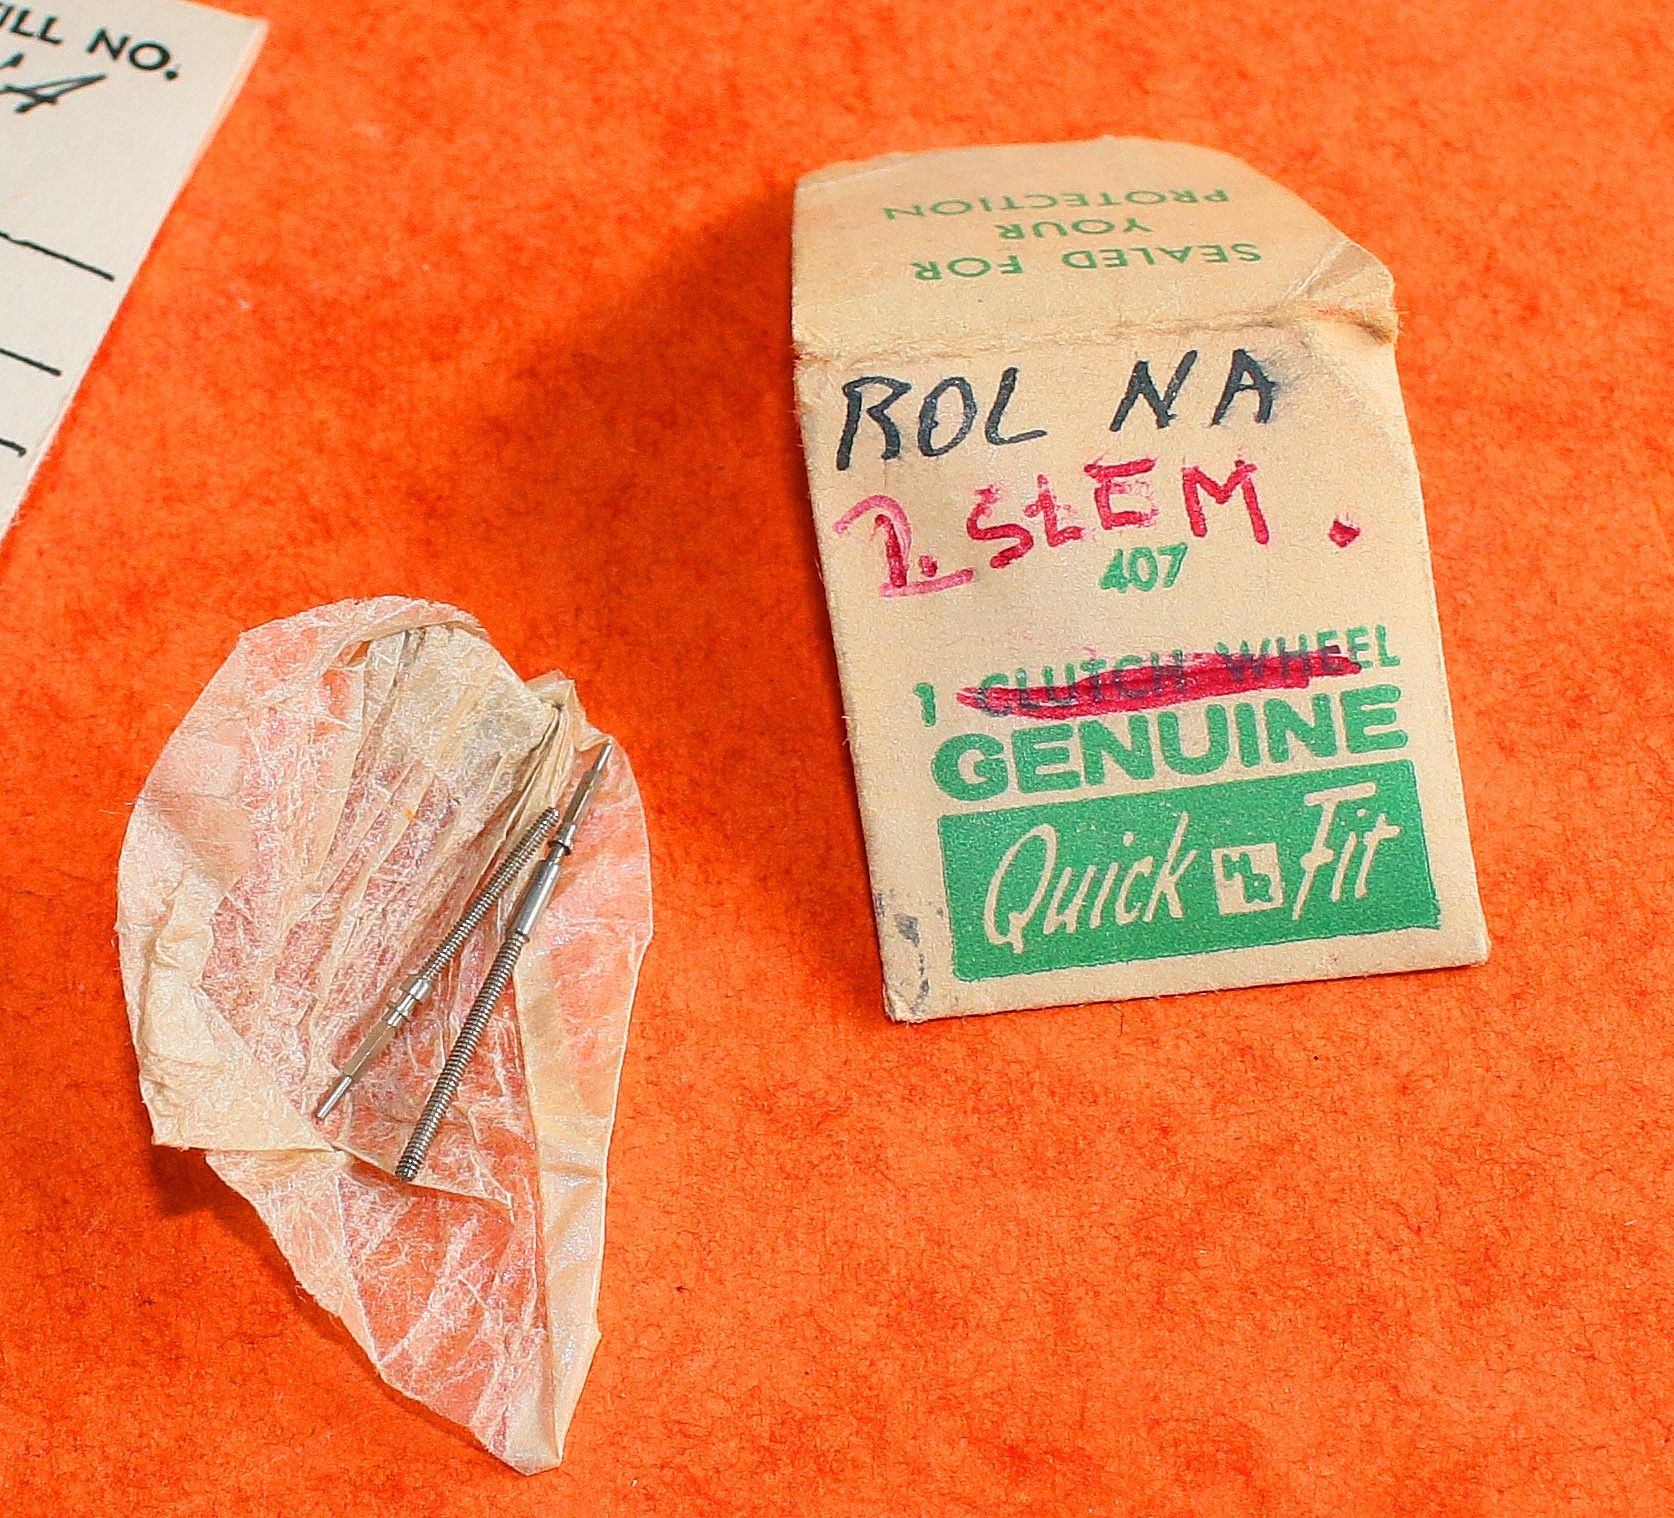 ILL NO.
SEALED FOR
YOUR
PROTECTION
ROL NA
2. StEM.
407
1 CLUTCH WHEEL
GENUINE
Quick HR Fit